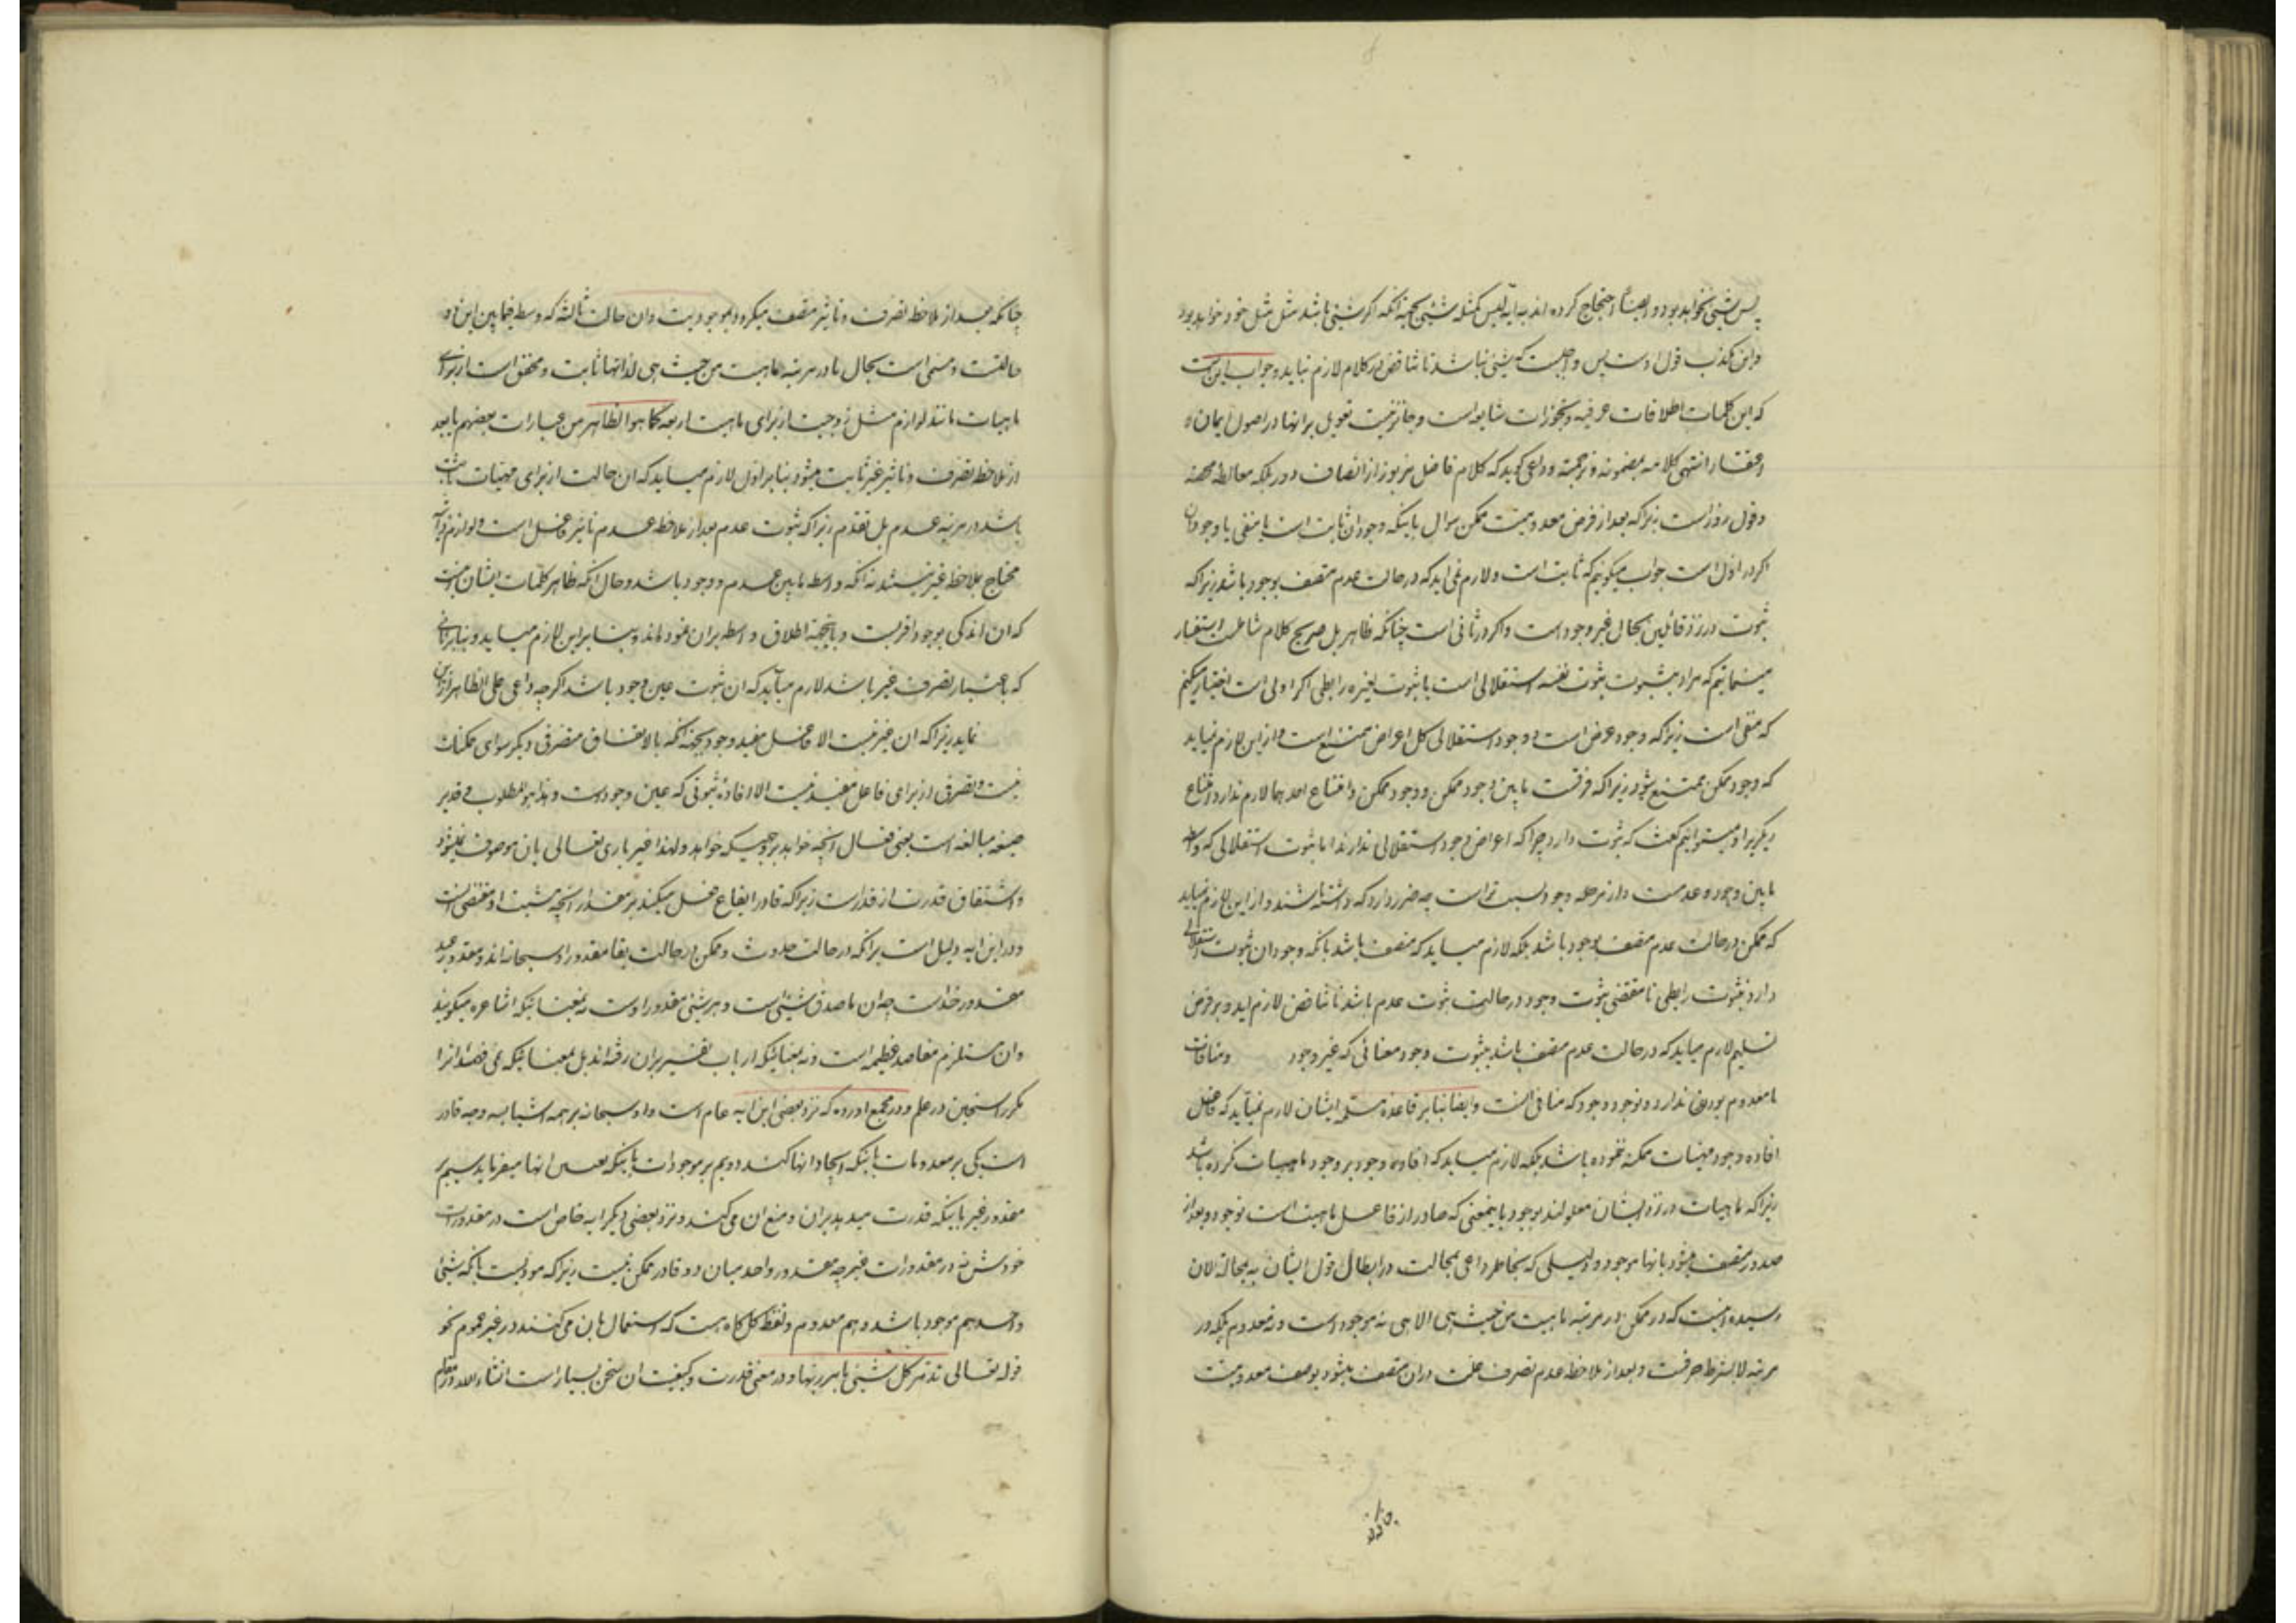 پس شیئی نخواهد بود و ایضاً احتجاج کرده اند به ایه لیس کمثله شیئی بجهة انکه اکر شیئی باشد مثل مثل خود خواهد بود
و این مکذب قول اوست پس واجبست که شیئی نباشد تا تناقض در کلام لازم نیاید و جواب این است
که این کلمات اطلاقات عرفیه و تجوزات شایعه است و جائز نیست تعویل بر انها در اصول ایمان و
اعتقاد انتهی کلامه بمضمونه و ترجمته و داعی کوید که کلام فاضل مزبور از انصاف دور بلکه مغالطه محضه
و قول زور است زیرا که بعد از فرض معدومیت ممکن سوال باینکه وجود ان ثابت است یا منفی یا وجود ان
اکر در اول است جواب میکوئیم که ثابت است و لازم نمی اید که در حالت عدم متصف بوجود باشد زیرا که
ثبوت در نزد قائلین بحال غیر وجود است و اکر در ثانی است چنانکه ظاهر بل صریح کلام شاملست استفسار
مینمائیم که مراد بثبوت ثبوت نفسه استقلالی است یا ثبوت لغیره رابطی اکر اولی است اختیار میکنیم
که منفی است زیرا که وجود عرض است و وجود استقلالی کل اعراض ممتنع است و از این لازم نیاید
که وجود ممکن ممتنع شود زیرا که فرقست مابین وجود ممکن و وجود ممکن و امتناع احدهما لازم ندارد امتناع
دیکریرا و میتوانیم کفت که ثبوت دارد چرا که اعراض وجود استقلالی ندارند اما ثبوت استقلالی که واسطه
مابین وجود و عدمست و از مرحله وجود پست تر است چه ضرر دارد که داشته باشند و از این لازم نمیاید
که ممکن در حالت عدم متصف بوجود باشد بلکه لازم میاید که متصف باشد بانکه وجود ان ثبوت استقلالی
دارد نه ثبوت رابطی تا مقتضی ثبوت وجود در حالت ثبوت عدم باشد تا تناقض لازم اید و بر فرض
تسلیم لازم میاید که در حالت عدم متصف باشد بثبوت وجود معنائی که غیر وجود و منافات
با معدوم بودن ندارد و نه وجود وجود که منافی انست و ایضا بنا بر قاعده مسلمه ایشان لازم نمیآید که فاعل
افاده وجود مهیات ممکنه نموده باشد بلکه لازم میاید که افاده وجود بر وجود ماهیات کرده باشد
زیرا که ماهیات در نزد ایشان معلولند بوجود باینمعنی که صادر از فاعل ماهیت است نه وجود و بعد از
صدور متصف میشود بانها موجود و دلیلی که بخاطر داعی بمجالت در ابطال قول ایشان به محالة الان
رسیده اینست که در ممکن در مرتبه ماهیت من حیث هی الا هی نه موجود است و نه معدوم بلکه در
مرتبه لابشرط صرفست و بعد از ملاحظه عدم تصرف علت در ان متصف میشود بوصف معدومیت
چنانکه
چنانکه بعد از ملاحظه تصرف و تاثیر متصف میکردد بموجودیت و ان حالت ثالثه که وسط فیمابین این دو
حالتست و مسمی است بحال یا در مرتبه ماهیت من حیث هی لذاتها ثابت و محقق است از برای
ماهیات مانند لوازم مثل زوجیت از برای ماهیت اربعه کما هو الظاهر من عبارات بعضهم یا بعد
از ملاحظه تصرف و تاثیر غیر ثابت میشود بنا بر اول لازم میاید که ان حالت از برای مهیات ثابت
باشد در مرتبه عدم بل تقدم زیرا که ثبوت عدم بعد از ملاحظه عدم تاثیر فاعل است و لوازم ذاتیه
محتاج بملاحظه غیر نیستند نه انکه واسطه مابین عدم و وجود باشد و حال انکه ظاهر کلمات ایشان اینست
که ان اندکی بوجود اقربست و باینجهة اطلاق واسطه بران نموده اند و بنا براین لازم میاید و بنا بر ثانی
که باعتبار تصرف غیر باشد لازم میآید که ان ثبوت عین وجود باشد اکر چه داعی علی الظاهر
نماید زیرا که ان غیر نیست الا فاعل مفید وجود بجهة انکه بالاتفاق متصرفی دیکر سوای ممکنات
نیست و تصرفی از برای فاعل مفید نیست الا افاده ثبوتی که عین وجود است و هذا هو المطلوب و قدیر
صیغه مبالغه است یعنی فعال انچه خواهد بر وجهیکه خواهد و لهذا غیر باری تعالی بان موصوف نمیشود
و اشتقاق قدرت از قدر است زیرا که قادر ایقاع فعل میکند بر مقدار انچه مشیت او مقتضی انست
و در این ایه دلیل است برانکه در حالت حدوث و ممکن در حالت بقا مقدور اوسبحانه اند و مقدور عبد
مقدور خداست چه ان ماصدق شیئی است و هر شیئی مقدور اوست نه بمعنائیکه اشاعره میکویند
و ان مستلزم مفاصد عظیمه است و نه بمعنائیکه ارباب تفسیر بران رفته اند بل بمعنائیکه نمی فهمند انرا
مکر راسخین در علم و در مجمع اورده که نزد بعضی این ایه عام است و او سبحانه بر همه اشیا بسه وجه قادر
است یکی بر معدومات باینکه ایجاد انها کند دویم بر موجودات باینکه انها میفرماید سیم بر
مقدور غیر باینکه قدرت میدهد بران و منع ان می کند و نزد بعضی دیکر ایه خاص است در مقدورات
خودش نه در مقدورات غیر چه مقدور واحد میان دو قادر ممکن نیست زیرا که مودیست بانکه شیئی
واحد هم موجود باشد و هم معدوم و لفظ کل کاه هست که استعمال بان می کنند در غیر عموم نحو
قوله تعالی تدمر کل شیئی بامر ربها و در معنی قدرت و کیفیت ان سخن بسیار است انشاءالله در مقام